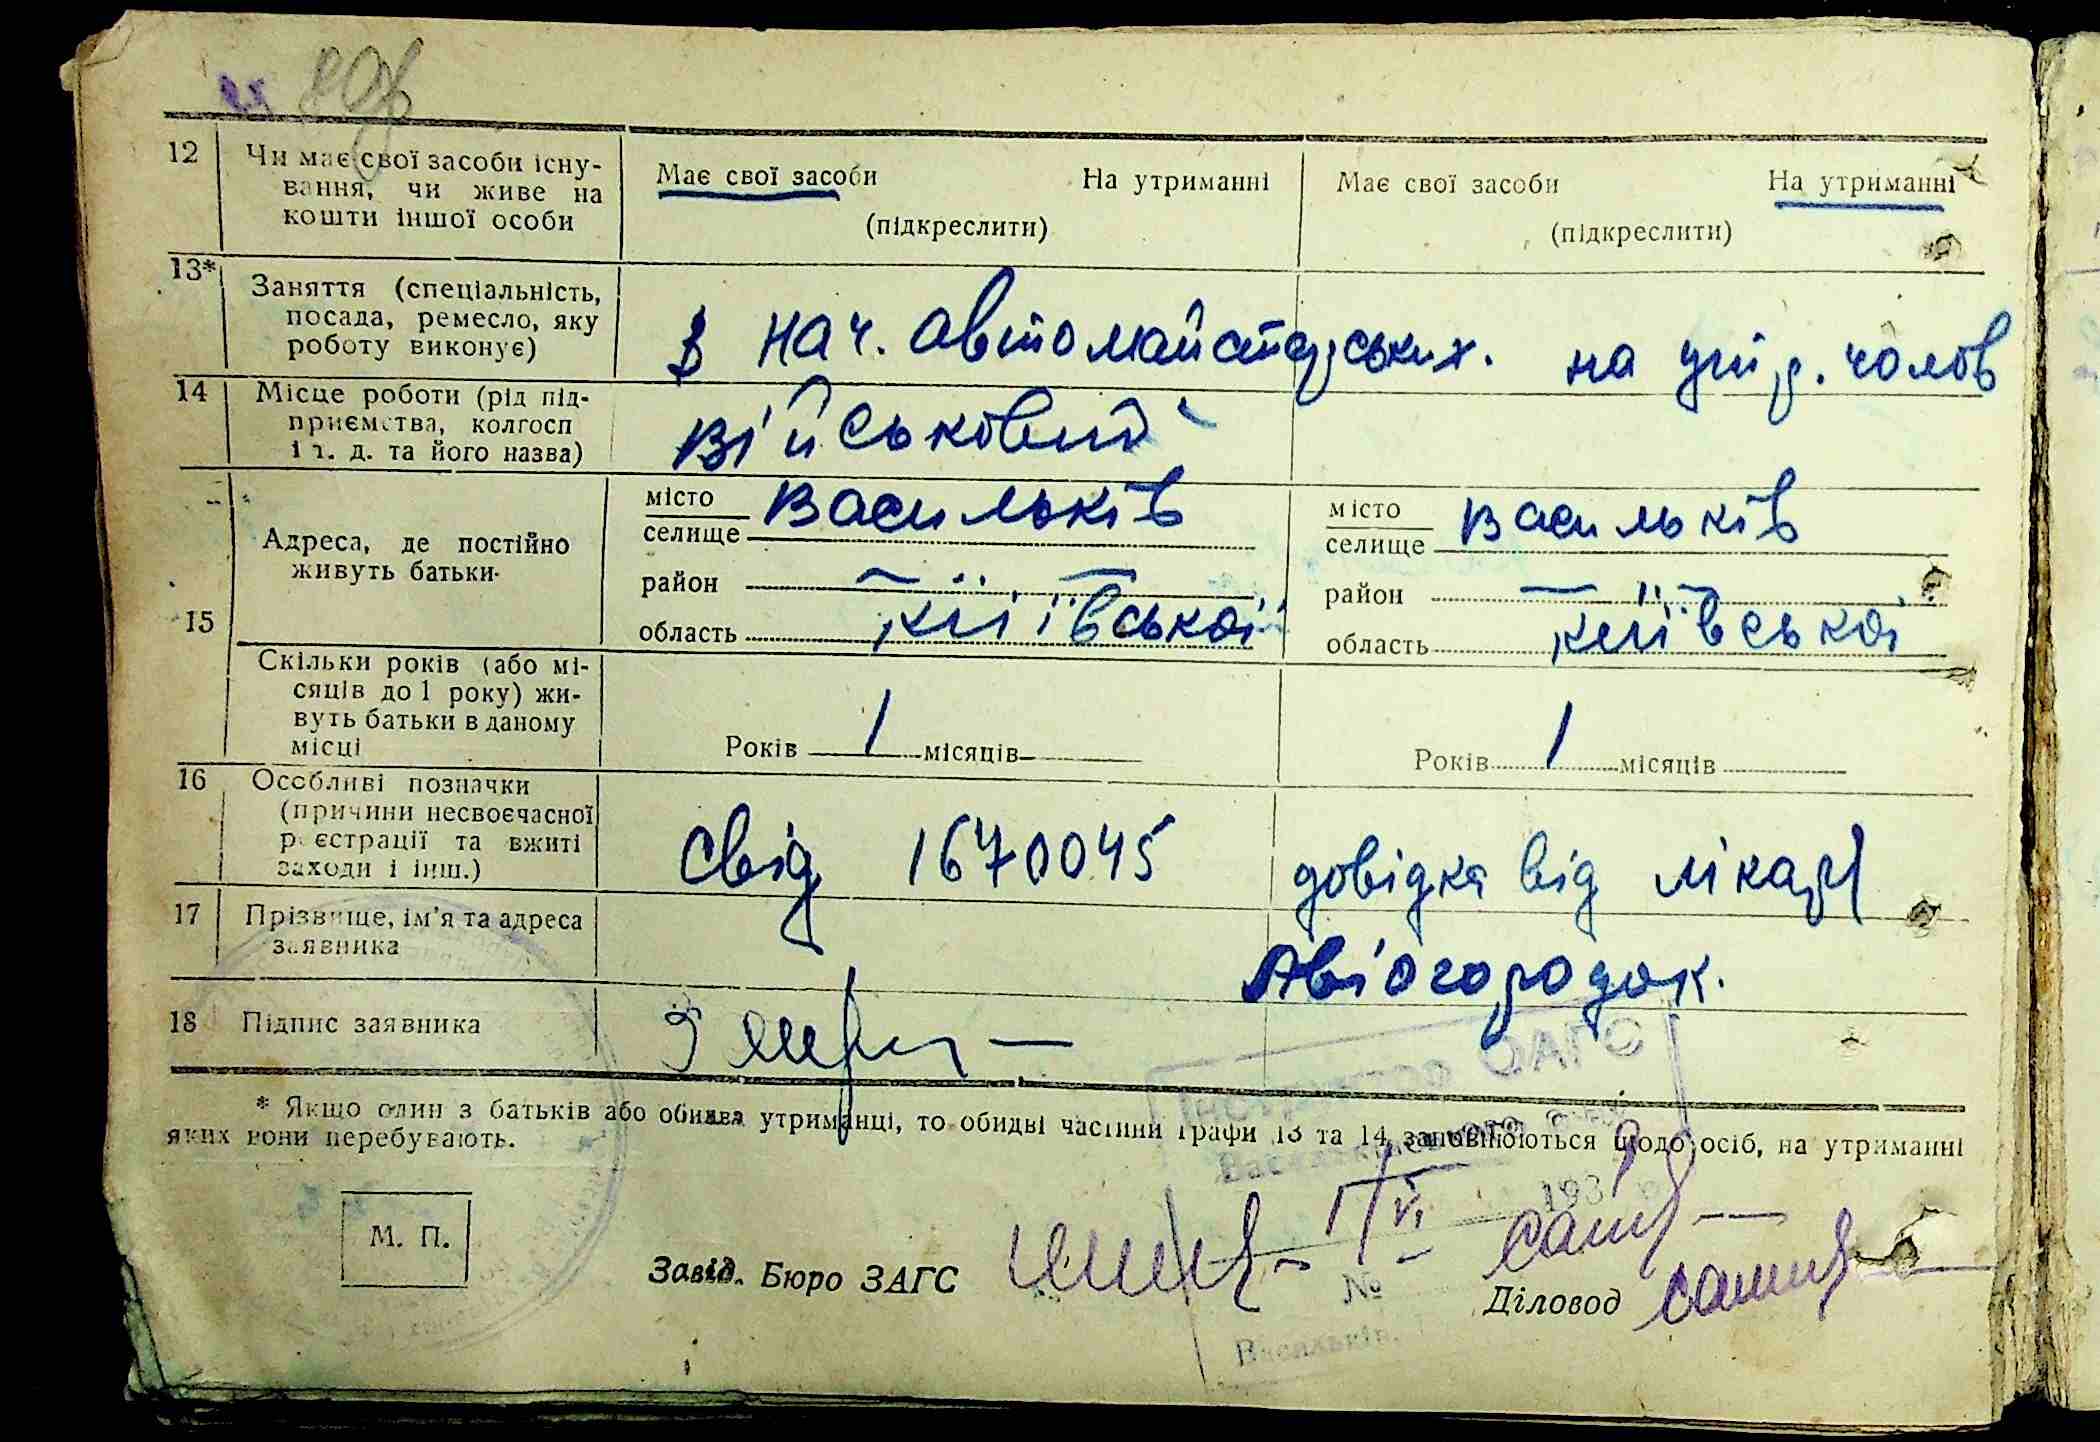 12 Чи має свої засоби існу- Має свої засоби На утриманні Має свої засоби На утриманні
вання, чи живе на
кошти іншої особи (підкреслити) (підкреслити)
13* Заняття (спеціальність,
посада, ремесло, яку нач. автомайстерських. на утр. чолов
роботу виконує)
14 Місце роботи (рід під-
приємства, колгосп Військовий
і т. д. та його назва)
місто Васильків місто Васильків
селище селище
Адреса, де постійно
живуть батьки район — — район — —
15 область Київської область Київської
Скільки років (або мі-
сяців до 1 року) жи-
вуть батьки в даному
місці Років 1 місяців Років 1 місяців
16 Особливі позначки
(причини несвоєчасної
реєстрації та вжиті Свід 1670045 довідка від лікаря
заходи і інш.)
17 Прізвище, ім'я та адреса
заявника Авіогородок.
18 Підпис заявника
* Якщо один з батьків або обидва утриманці, то обидві частини графи 13 та 14 заповнюються щодо осіб, на утриманні
яких вони перебувають.
М. П.
Завід. Бюро ЗАГС
Діловод
ЗАГС
193
№
Васильків.